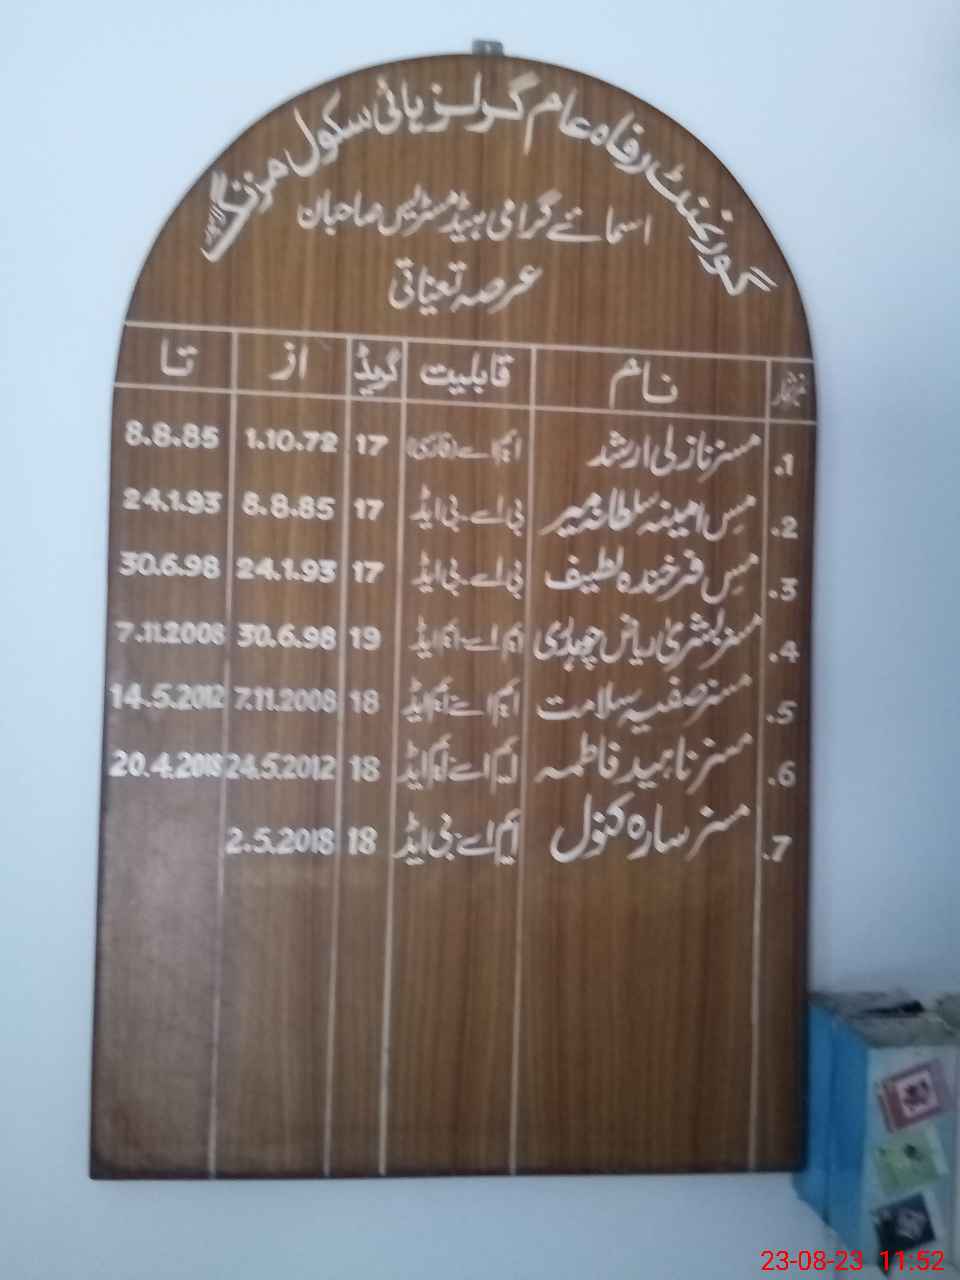 گورنمنٹ رفاہ عام گرلز ہائی سکول مزنگ لاہور
اسمائے گرامی ہیڈمسٹریس صاحبان
عرصہ تعیناتی
نمبرشمار نام قابلیت گریڈ از تا
1. مسز نازلی ارشد ایم اے (فارسی) 17 1.10.72 8.8.85
2. مس امینہ سلطانہ میر بی اے۔بی ایڈ 17 8.8.85 24.1.93
3. مس فرخندہ لطیف بی اے۔بی ایڈ 17 24.1.93 30.6.98
4. مسز بشریٰ ریاض چوہدری ایم اے۔ایم ایڈ 19 30.6.98 7.11.2008
5. مسز صفیہ سلامت ایم اے۔ایم ایڈ 18 7.11.2008 14.5.2012
6. مسز ناہید فاطمہ ایم اے۔ایم ایڈ 18 24.5.2012 20.4.2018
7. مسز سارہ کنول ایم اے۔بی ایڈ 18 2.5.2018
23-08-23 11:52